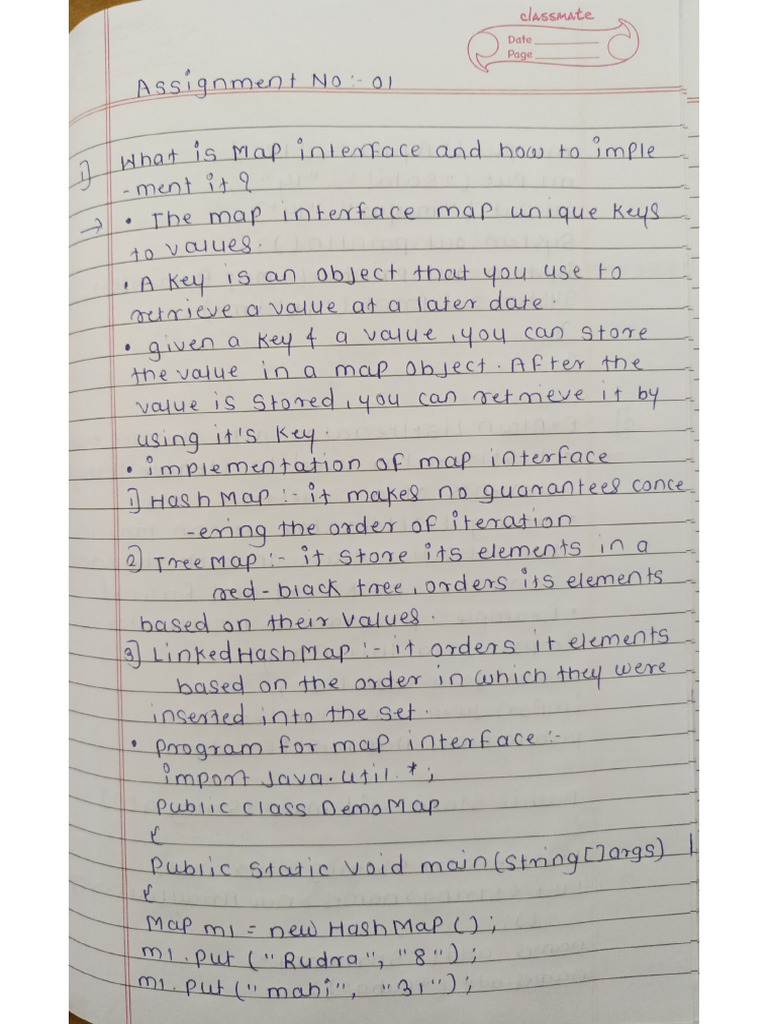 classmate
Date
Page
Assignment No:- 01
1) What is Map interface and how to imple
-ment it?
→ • The map interface map unique keys
to values.
• A key is an object that you use to
retrieve a value at a later date.
• given a key & a value, you can store
the value in a map object. After the
value is stored, you can retrieve it by
using it's key.
• implementation of map interface
1) HashMap :- it makes no guarantees conce
-ering the order of iteration
2) TreeMap :- it store its elements in a
red-black tree, orders its elements
based on their values.
3) LinkedHashMap :- it orders it elements
based on the order in which they were
inserted into the set.
• program for map interface :-
import java.util.*;
public class DemoMap
{
public static void main(String[]args)
{
Map m1 = new HashMap();
m1.put ("Rudra", "8");
m1.put ("mahi", "31");